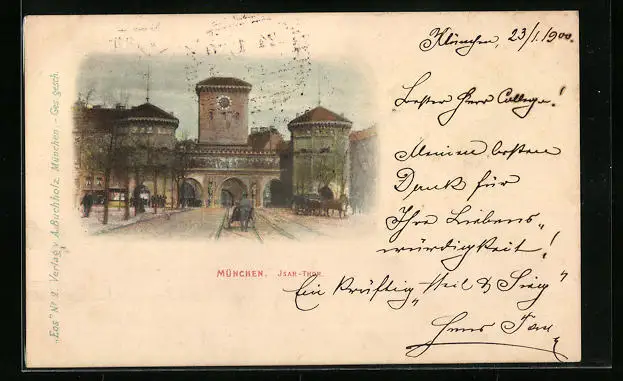 München, 23/1.1900.
Bester Herr College!
Meinen besten
Dank für
Ihre Liebens„
würdigkeit!
Ein kräftig „Heil & Sieg"
MÜNCHEN. JSAR-THOR.
„Eos" No 2. Verlag v. A. Buchholz München.- Ges. gesch.